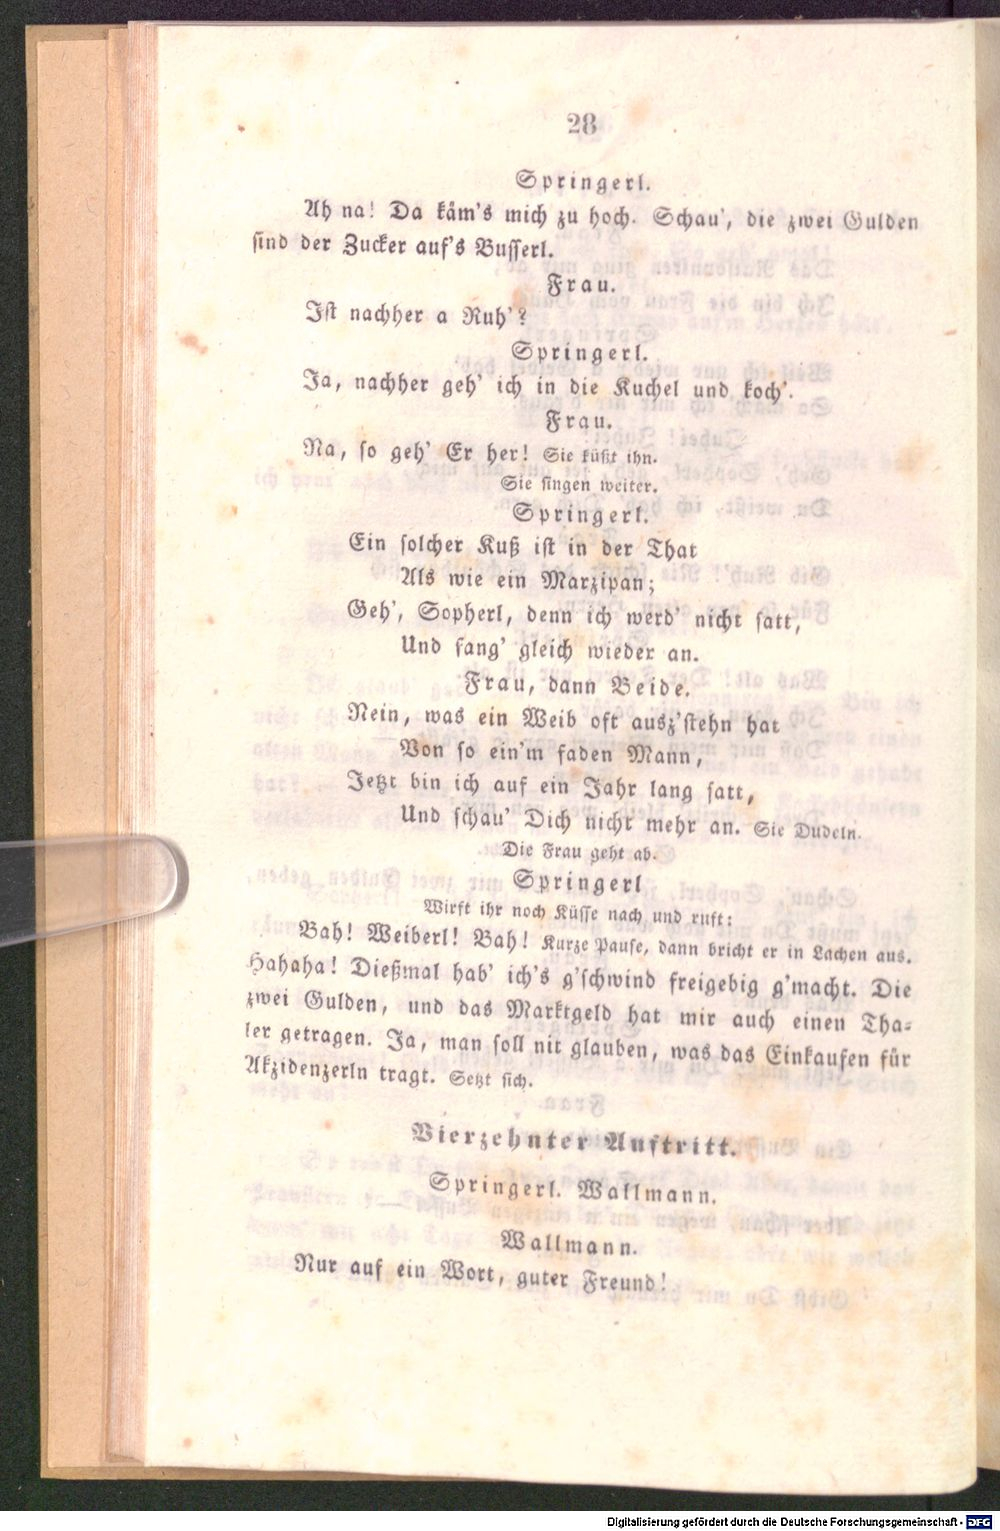 28
Springerl.
Ah na! Da käm's mich zu hoch. Schau', die zwei Gulden
sind der Zucker auf's Busserl.
Frau.
Ist nachher a Ruh'?
Springerl.
Ja, nachher geh' ich in die Kuchel und koch'.
Frau.
Na, so geh' Er her! Sie küßt ihn.
Sie singen weiter.
Springerl.
Ein solcher Kuß ist in der That
Als wie ein Marzipan;
Geh', Sopherl, denn ich werd' nicht satt,
Und fang' gleich wieder an.
Frau, dann Beide.
Nein, was ein Weib oft ausz'stehn hat
Von so ein'm faden Mann,
Jetzt bin ich auf ein Jahr lang satt,
Und schau' Dich nicht mehr an. Sie Dudeln.
Die Frau geht ab.
Springerl
Wirft ihr noch Küsse nach und ruft:
Bah! Weiberl! Bah! Kurze Pause, dann bricht er in Lachen aus.
Hahaha! Dießmal hab' ich's g'schwind freigebig g'macht. Die
zwei Gulden, und das Marktgeld hat mir auch einen Tha-
ler getragen. Ja, man soll nit glauben, was das Einkaufen für
Akzidenzerln tragt. Setzt sich.
Vierzehnter Auftritt.
Springerl. Wallmann.
Wallmann.
Nur auf ein Wort, guter Freund!
Digitalisierung gefördert durch die Deutsche Forschungsgemeinschaft - DFG